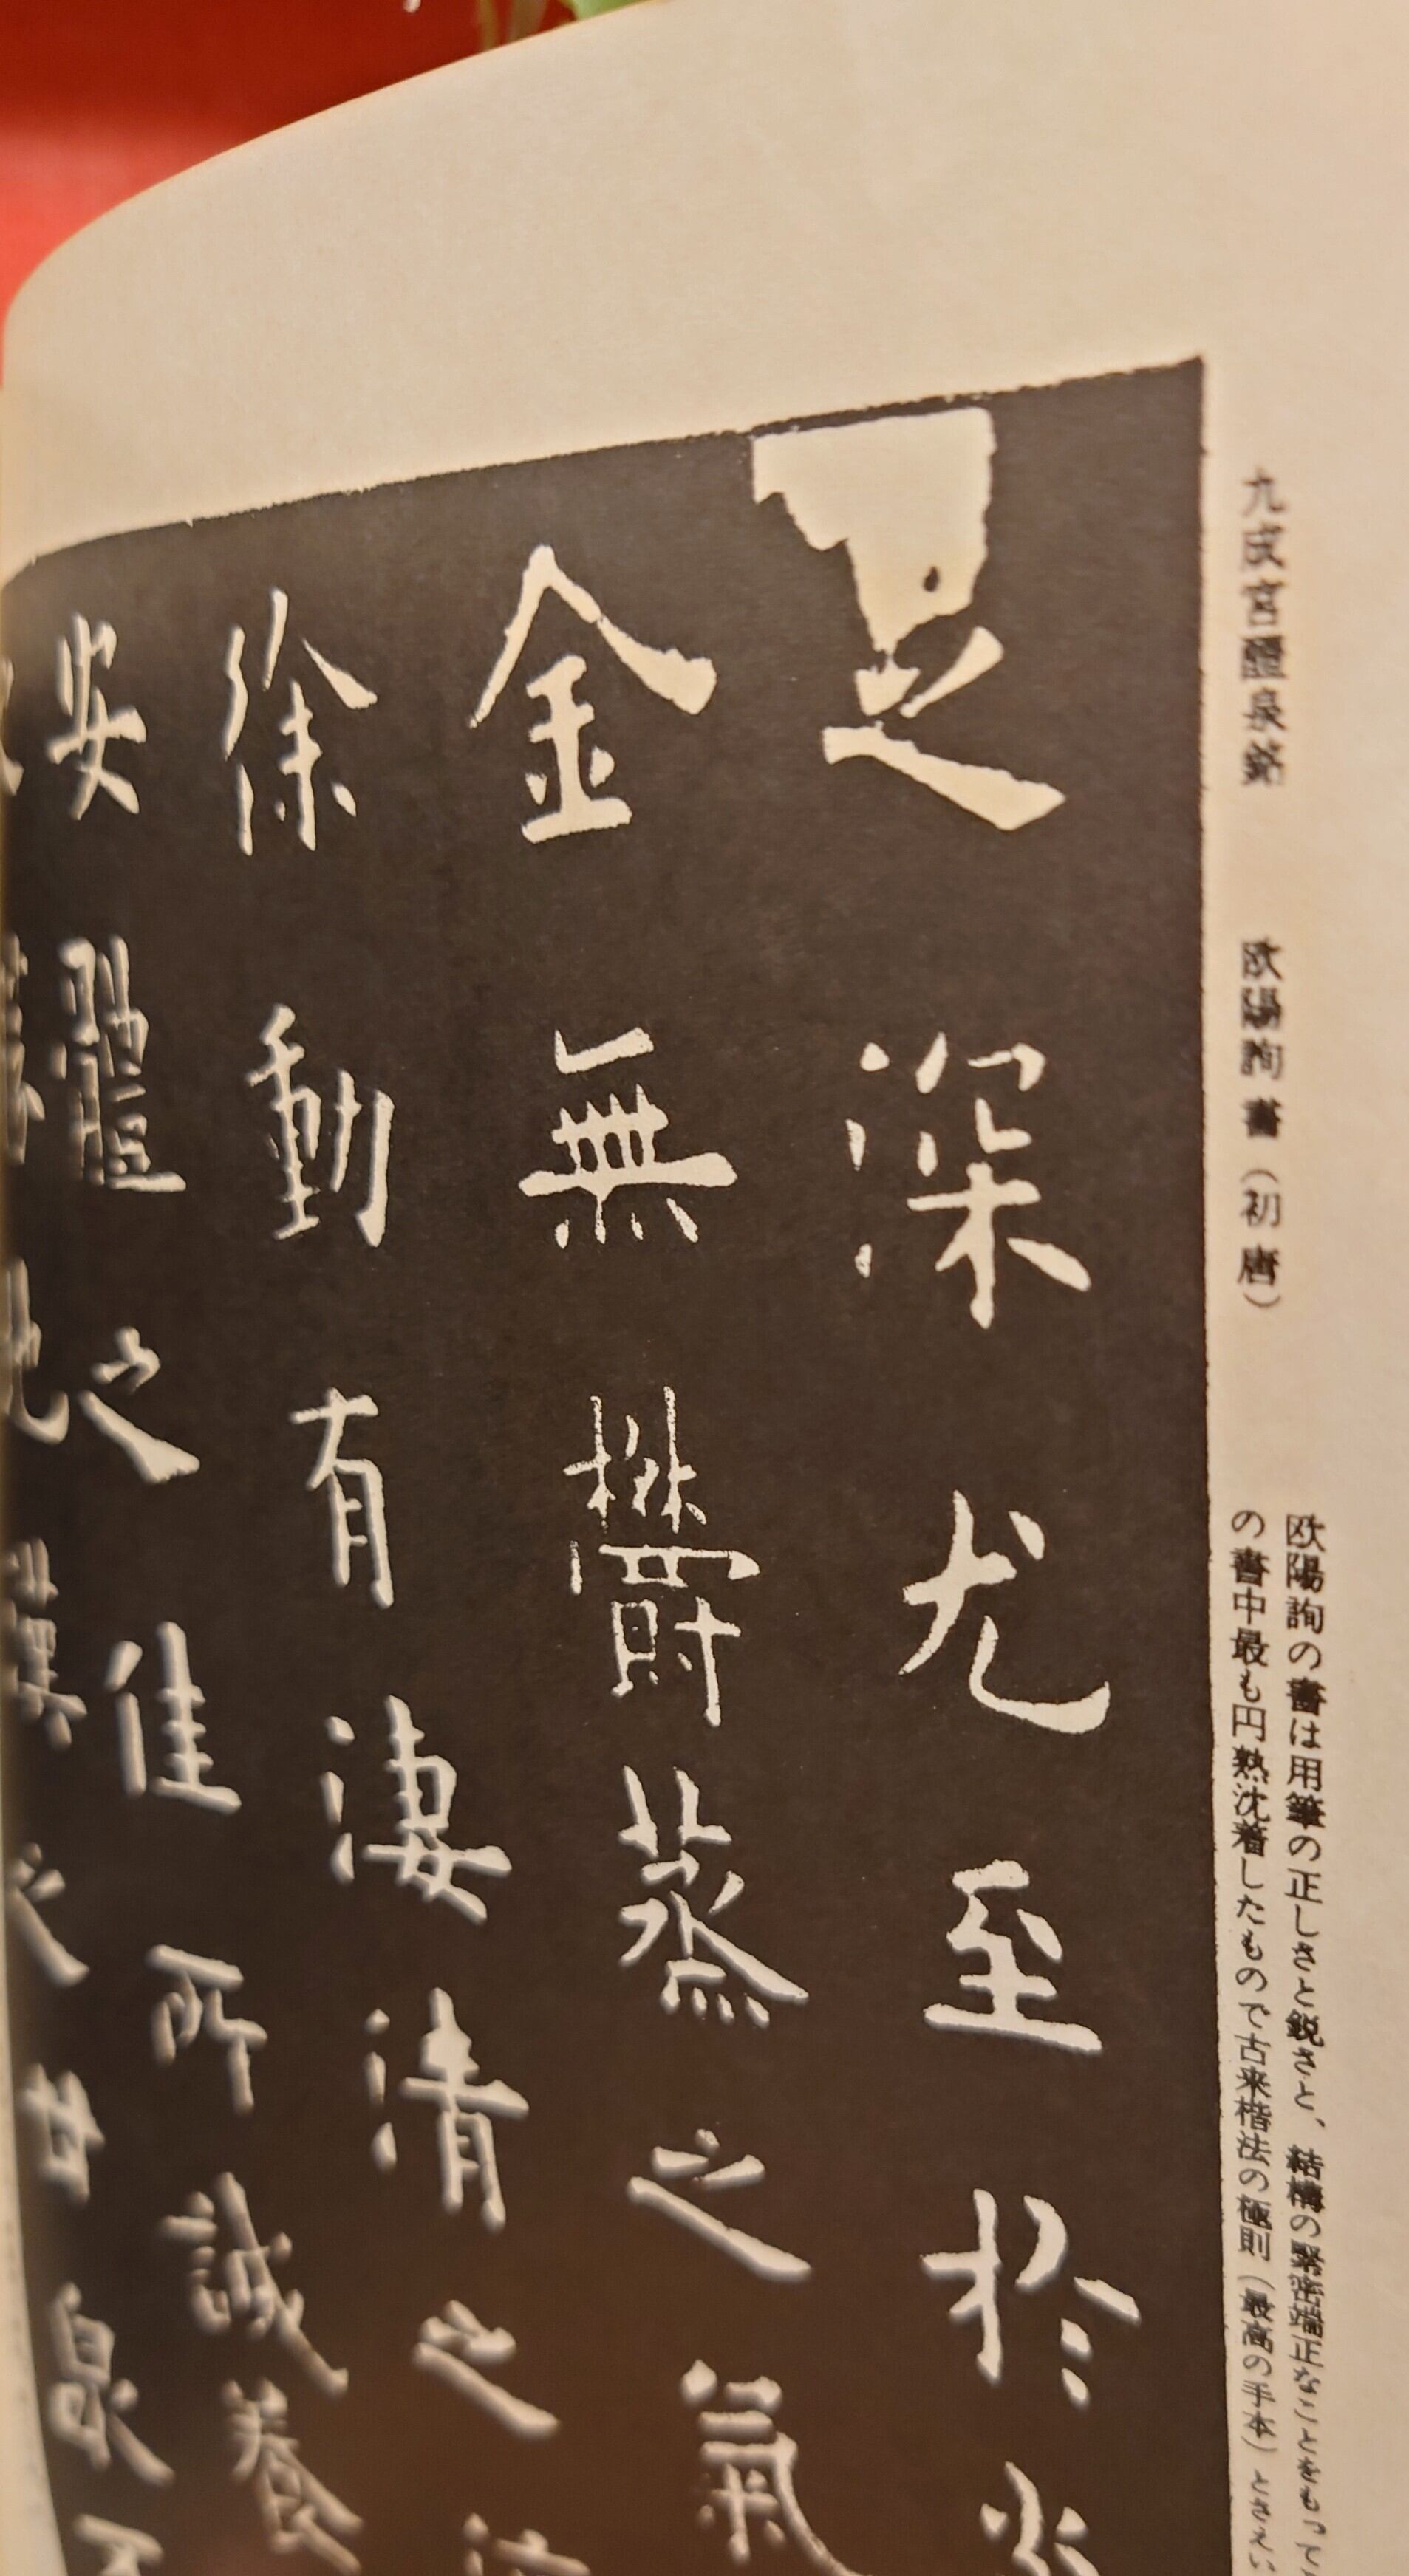 九成宮醴泉銘　欧陽詢書(初唐)
欧陽詢の書は用筆の正しさと鋭さと、結構の緊密端正なことをもって
の書中最も円熟沈着したもので古来楷法の極則(最高の手本)とさえい
足深尤至於炎
金無鬱蒸之氣
徐動有淒清之
安體之佳所誠養
地漢之甘泉不